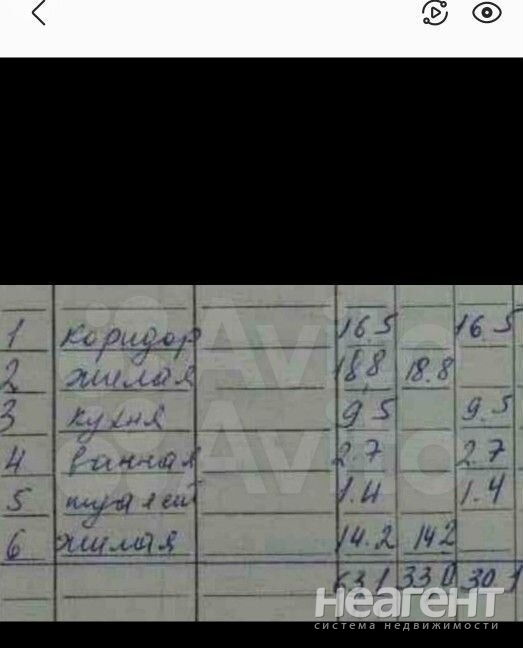 1 коридор 16.5 16.5
2 жилая 18.8 18.8
3 кухня 9.5 9.5
4 ванная 2.7 2.7
5 туалет 1.4 1.4
6 жилая 14.2 14.2
63.1 33.0 30.1
Avito
Avito
НЕАГЕНТ
система недвижимости